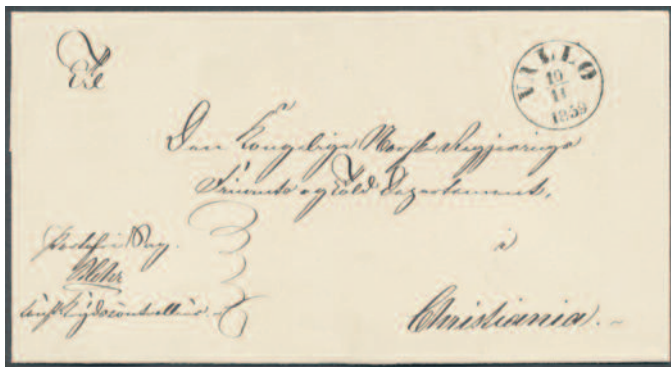 Til
VALLØ
10
11
1859
Den Kongelige Norske Regjerings
Finants og Told Departement,
i
Christiania.
Portofri Sag.